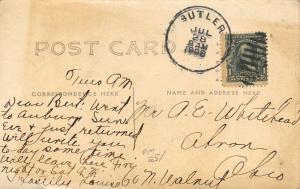 BUTLER
JUL
28
AM
1908
POST CARD
CORRESPONDENCE HERE
NAME AND ADDRESS HERE
Tues A.M.
Dear Bert. Went
to Auburn Sun.
Eve & just returned
Will write you
to-day some time
Will leave here Fri.
night or Sat. A.M.
Hastily Louise
Mr A. E. Whitehead
Akron
Ohio
60 N. Walnut